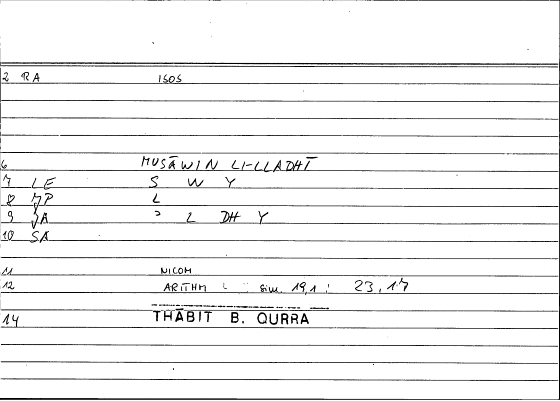 2 RA ISOS
6 MUSĀWIN LI-LLADHĪ
7 LE S W Y
8 JP L
9 JA ʾ L DH Y
10 SA
11 NICOM
12 ARITHM : sim. 19,1 : 23,17
14 THĀBIT B. QURRA